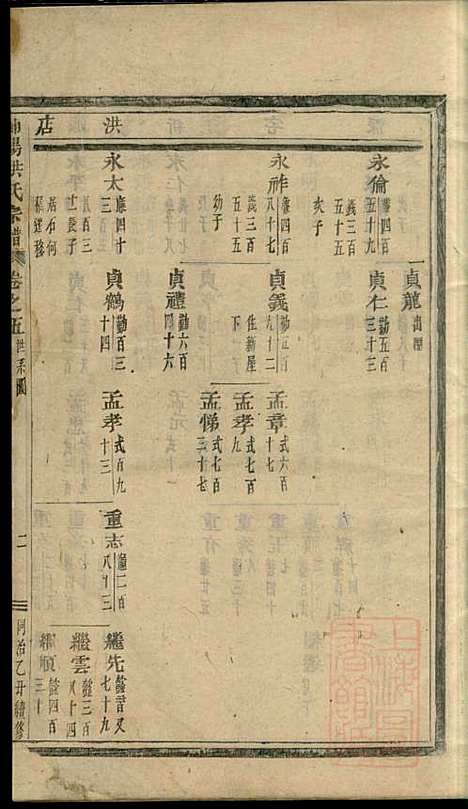 洪店
永倫
五十九
義三百
五十五
亥子
永祚
康四百
八十七
義三百
五十五
幼子
永太
康四十
三
義百三
十一
長子
居石何
貞龍
貞仁
勤五百
三十三
貞義
九十二
住新屋
下
貞禮
勤六百
四十六
貞鶴
勤百三
十四
孟章
式六百
十七
孟孝
式七百
九
孟悌
式七百
三十七
孟孝
式百九
十三
重志
八百三
繼先
七十九
繼雲
三百
八十四
繼順
四百
三十
洪氏宗譜
卷之五
世系圖
二
同治乙丑續修